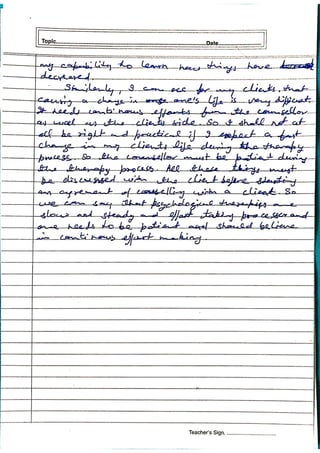 Topic Date
my capability to learn new things have
decreased.
Similarly, I can see for my clients, that
causing a change in one's life is very difficult.
It needs conti'nous efforts from the counsellor
as well as the clients side. So I shall not at
all be right and practical if I expect a fast
change in my clients life during the therapy
process. So the counsellor must be patient during
the therapy process. All these things must
be discussed with the client before starting
an agreement of counselling with a client. So
we can say that psychological therapies are
slow and steady and effort taking processes and
one needs to be patient and should believe
in continous effort making.
Teacher's Sign.